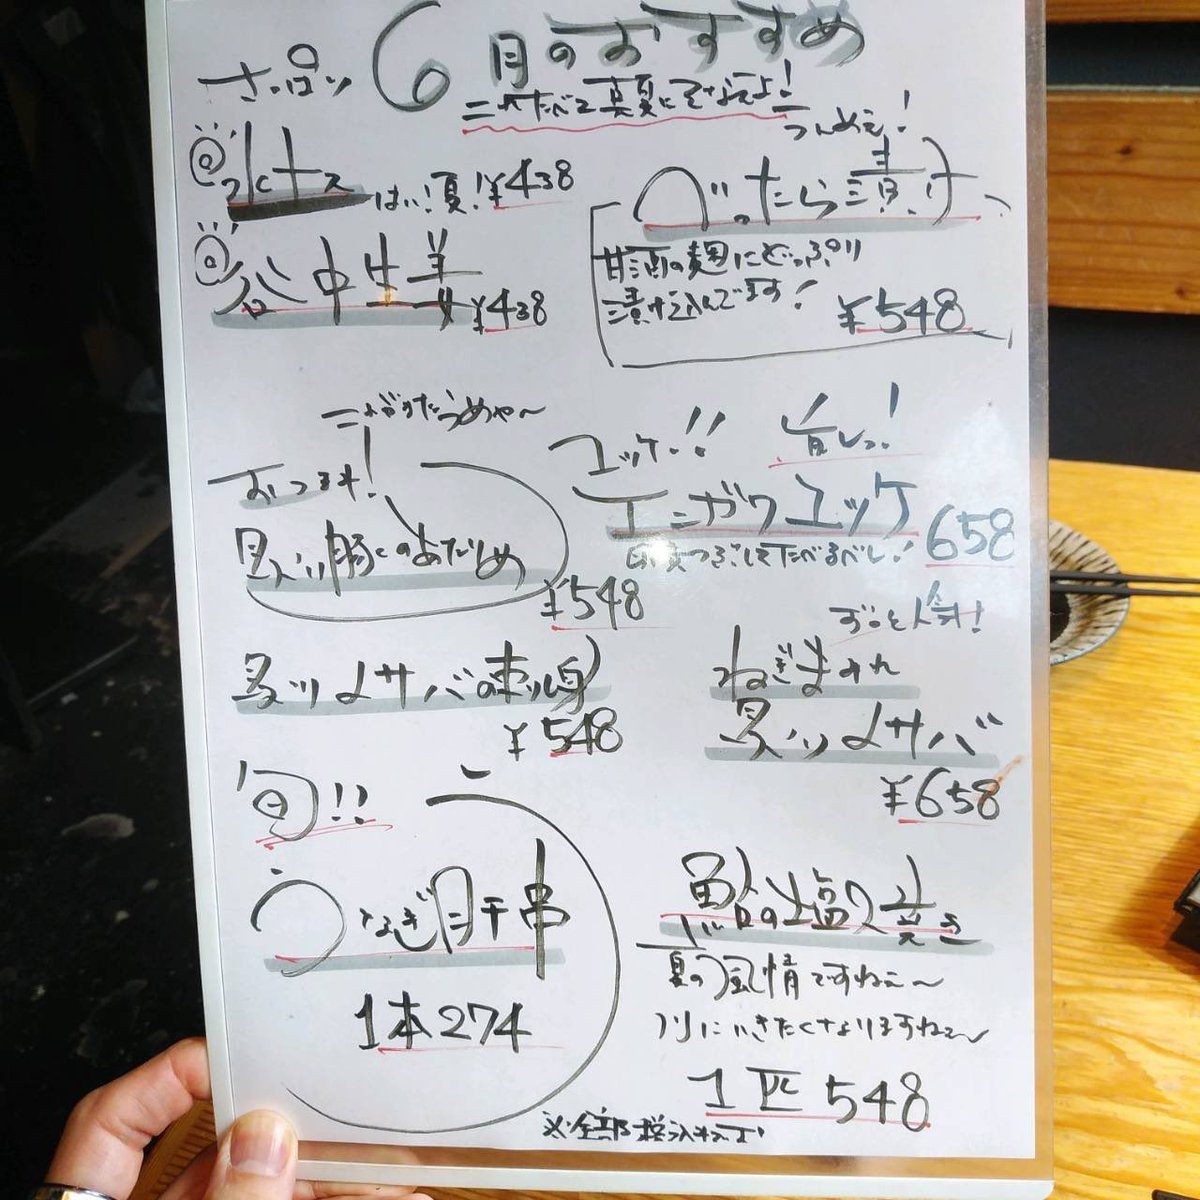 さっぱり
6月のおすすめ
これたべて真夏にそなえよ!
水ナス
はい!夏!¥438
谷中生姜
¥438
つんめぇ!
べったら漬け
甘酒の麹にどっぷり
漬け込んでます!
¥548
これがまたうめや〜
おつまみ!
炙り豚とろわだしめ
¥548
ユッケ!!
旨しっ!
エニガワユッケ
658
卵黄つぶしてたべるべし!
炙りメサバの刺し身
¥548
ずっと人気!
ねぎまみれ
炙りメサバ
¥658
旬!!
うなぎ肝串
1本274
鮎の塩焼き
夏の風情ですねぇ〜
川にいきたくなりますねぇ〜
1匹548
※全部税込みっす